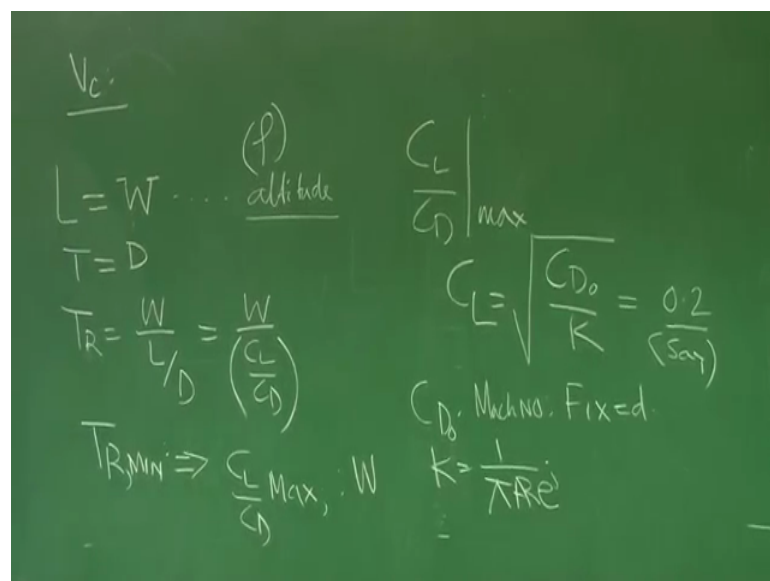 Vc:
L = W .... (ρ) altitude
T = D
T_R = W / (L/D) = W / (C_L/C_D)
T_R,MIN ⇒ C_L/C_D Max, : W
C_L/C_D | max
C_L = √(C_D0/K) = 0.2 (Say)
C_D0. Mach No. Fixed.
K = 1/(πARe)